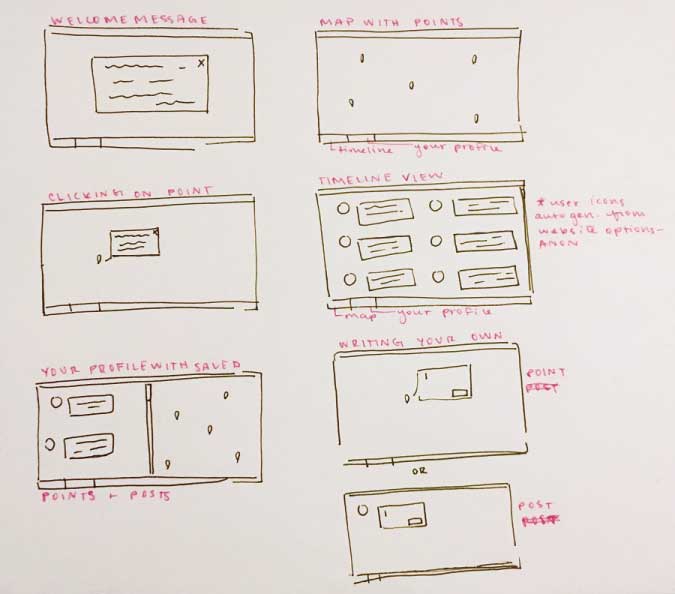 WELCOME MESSAGE
MAP WITH POINTS
timeline
your profile
CLICKING ON POINT
TIMELINE VIEW
* user icons
auto gen. from
website options -
ANON
map
your profile
YOUR PROFILE WITH SAVED
POINTS + POSTS
WRITING YOUR OWN
POINT
POST
OR
POST
POST